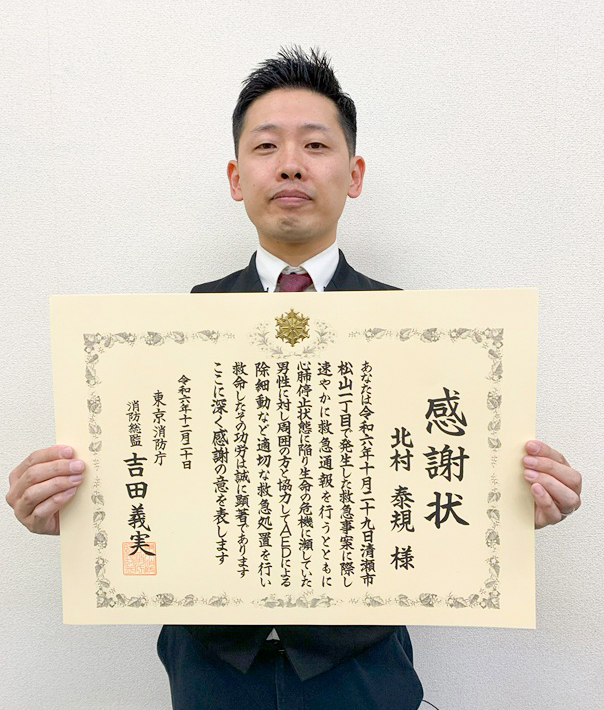 感謝状
北村 泰規 様
あなたは令和六年十月二十九日清瀬市
松山一丁目で発生した救急事案に際し
速やかに救急通報を行うとともに
心肺停止状態に陥り生命の危機に瀕していた
男性に対し周囲の方と協力してAEDによる
除細動など適切な救急処置を行い
救命したその功労は誠に顕著であります
ここに深く感謝の意を表します
令和六年十二月二十日
東京消防庁
消防総監 吉田義実